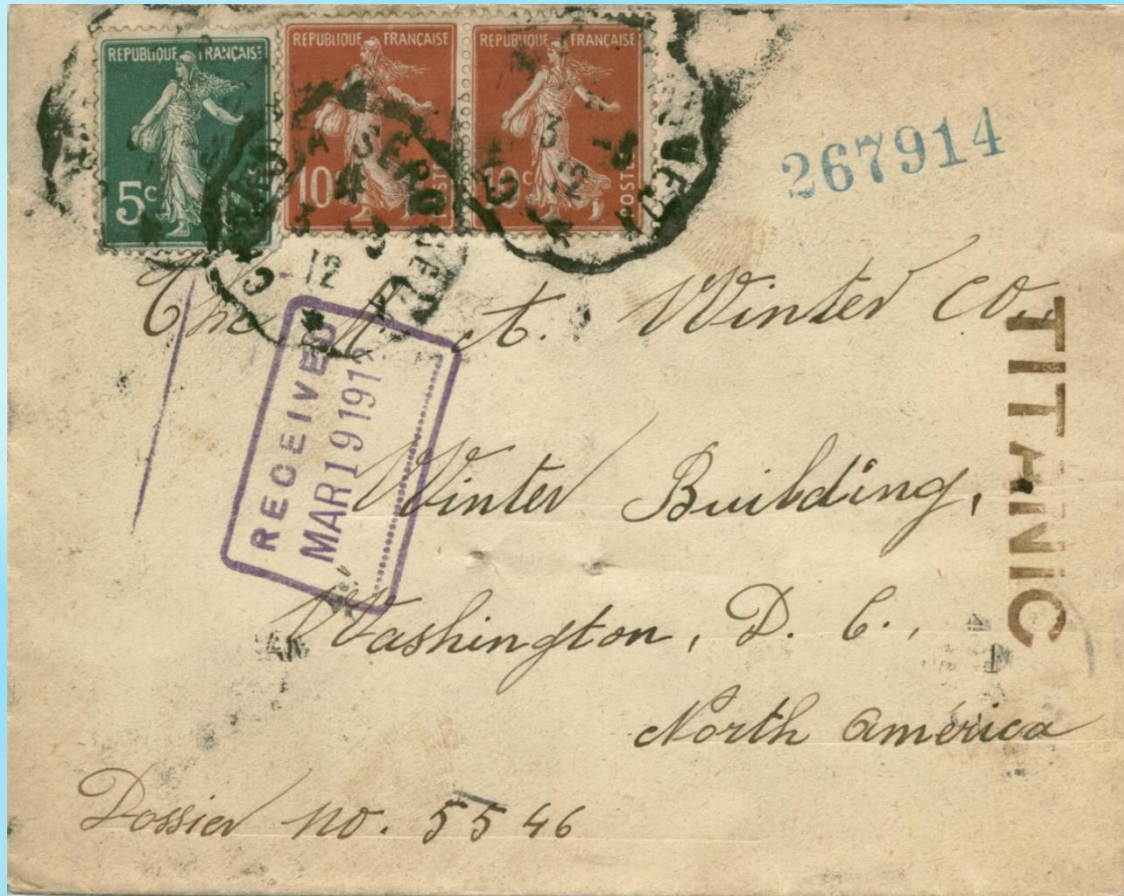 REPUBLIQUE FRANÇAISE
5c
REPUBLIQUE FRANÇAISE
10c
POSTES
REPUBLIQUE FRANÇAISE
10c
POSTES
3
12
12
267914
The A. Winter Co.,
RECEIVED
MAR 19 191
TITANIC
Winter Building,
Washington, D. C.,
North América
Dossier no. 5546